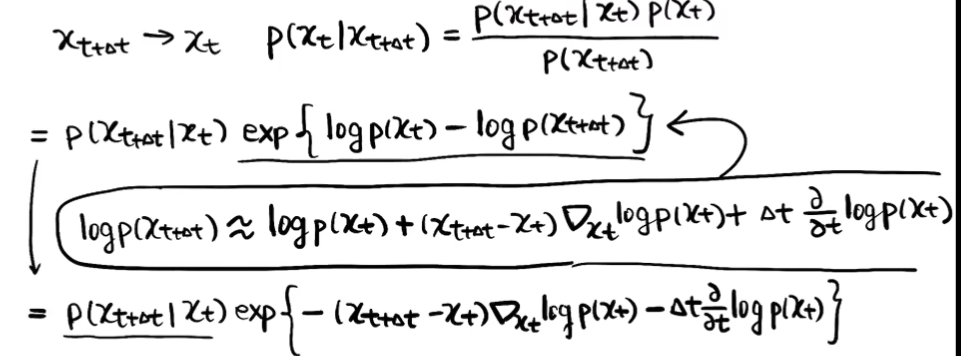 x_{t+Δt} → x_t   p(x_t|x_{t+Δt}) = \frac{p(x_{t+Δt}|x_t) p(x_t)}{p(x_{t+Δt})}
= p(x_{t+Δt}|x_t) exp{log p(x_t) − log p(x_{t+Δt})}
log p(x_{t+Δt}) ≈ log p(x_t) + (x_{t+Δt} − x_t) ∇_{x_t} log p(x_t) + Δt \frac{∂}{∂t} log p(x_t)
= p(x_{t+Δt}|x_t) exp{− (x_{t+Δt} − x_t) ∇_{x_t} log p(x_t) − Δt \frac{∂}{∂t} log p(x_t)}